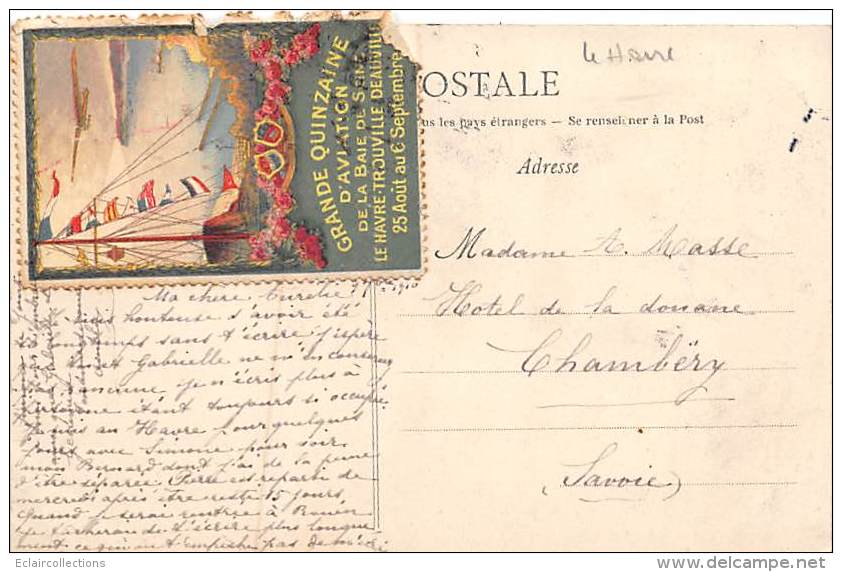 GRANDE QUINZAINE
D'AVIATION
DE LA BAIE DE SEINE
LE HAVRE-TROUVILLE-DEAUVILLE
25 Août au 6 Septembre
Le Havre
OSTALE
us les pays étrangers — Se renseigner à la Post
Adresse
Madame A. Masse
Hotel de la douane
Chambéry
(Savoie)
Ma chère Aurélie
suis honteuse d'avoir été
longtemps sans t'écrire j'espère
Gabrielle ne m'en
aucune je n'écris plus à
personne étant toujours si occupée
Je suis au Havre pour quelques
jours avec Simone pour voir
mon Bernard dont j'ai de la peine
d'être séparée. Pierre est reparti de
mercredi après être resté 15 jours
Quand je serai rentrée à Rouen
je tacherai de t'écrire plus longue
ment ce qui ne t'empêche pas de m'écri
Eclaircollections
www.delcampe.net